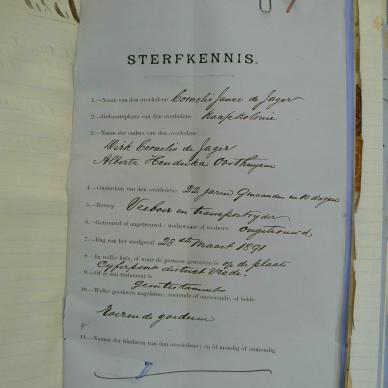 STERFKENNIS.
1.—Naam van den overledene: Cornelis Janse de Jager
2.—Geboorteplaats van den overledene: Kaap Kolonie
3.—Namen der ouders van den overledene:
Dirk Cornelis de Jager
Alberta Hendrika Oosthuysen
4.—Ouderdom van den overledene: 22 jaren 9 maanden en 10 dagen
5.—Beroep: Veeboer en transportryder
6.—Getrouwd of ongetrouwd; weduwnaar of weduwe: Ongetrouwd
7.—Dag van het sterfgeval: 28ste Maart 1891
8.—In welke huis, of waar de persoon gestorven is: op de plaats
distrikt Vrede
9.—Of er een testament is: geen testament
10.—Welke goederen nagelaten; roerende of onroerende, of beide
Roerende goederen
11.—Namen der kinderen van den overledene; en of mondig of onmondig